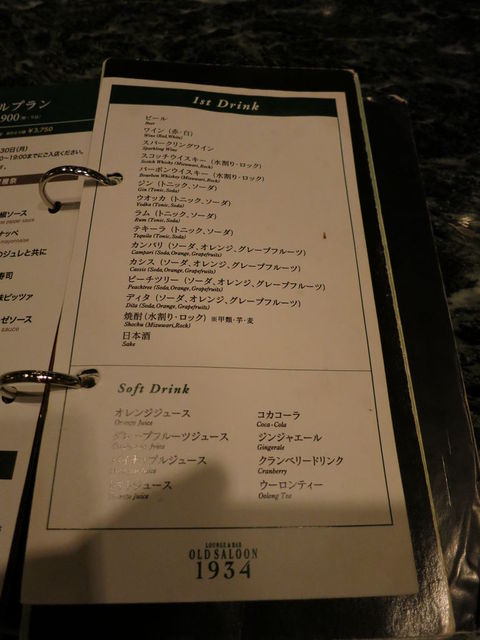 ルプラン
¥3,750
30日(月)
19:00までにご入店ください。
ソース
のジュレと共に
寿司
ピッツァ
ゼソース
1st Drink
ビール
Beer
ワイン (赤・白)
Wine (Red, White)
スパークリングワイン
Sparkling Wine
スコッチウイスキー (水割り・ロック)
Scotch Whisky (Mizuwari, Rock)
バーボンウイスキー (水割り・ロック)
Bourbon Whiskey (Mizuwari, Rock)
ジン (トニック、ソーダ)
Gin (Tonic, Soda)
ウオッカ (トニック、ソーダ)
Vodka (Tonic, Soda)
ラム (トニック、ソーダ)
Rum (Tonic, Soda)
テキーラ (トニック、ソーダ)
Tequila (Tonic, Soda)
カンパリ (ソーダ、オレンジ、グレープフルーツ)
Campari (Soda, Orange, Grapefruits)
カシス (ソーダ、オレンジ、グレープフルーツ)
Cassis (Soda, Orange, Grapefruits)
ピーチツリー (ソーダ、オレンジ、グレープフルーツ)
Peachtree (Soda, Orange, Grapefruits)
ディタ (ソーダ、オレンジ、グレープフルーツ)
Dita (Soda, Orange, Grapefruits)
焼酎 (水割り・ロック) ※甲類・芋・麦
Shochu (Mizuwari, Rock)
日本酒
Sake
Soft Drink
オレンジジュース
Orange Juice
グレープフルーツジュース
パイナップルジュース
トマトジュース
コカコーラ
Coca-Cola
ジンジャエール
Gingerale
クランベリードリンク
Cranberry
ウーロンティー
Oolong Tea
LOUNGE & BAR
OLD SALOON
1934